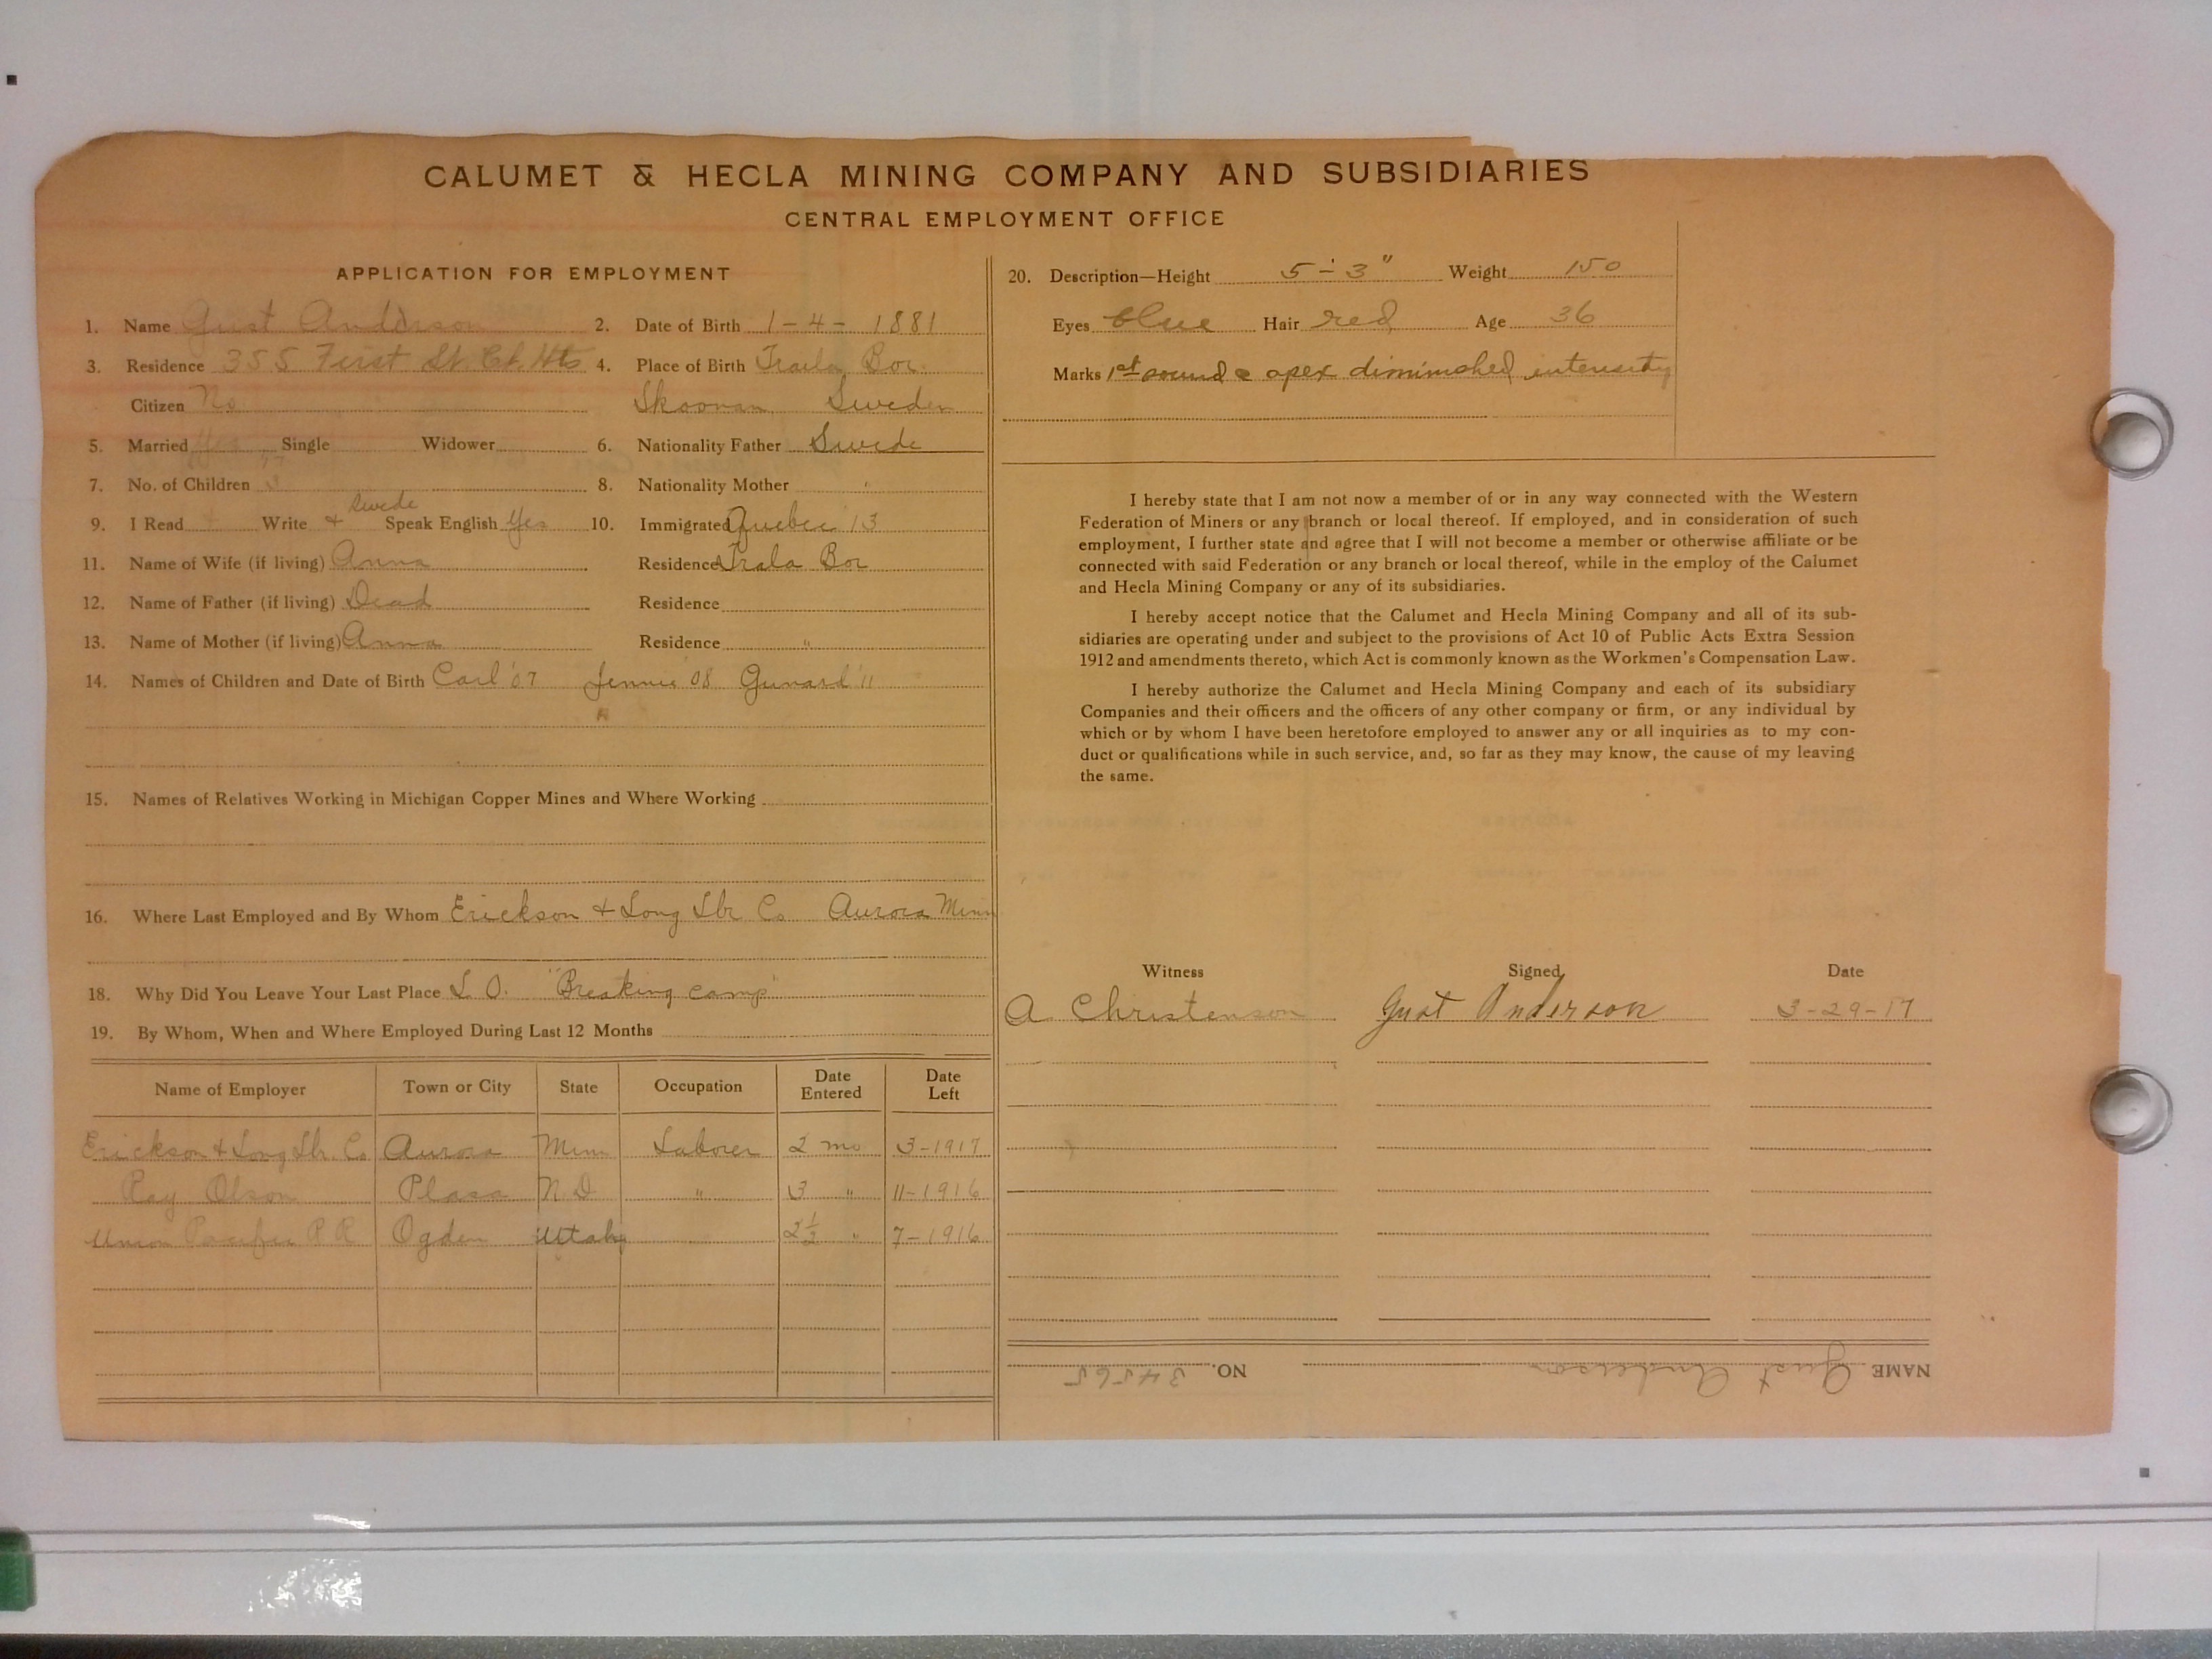 CALUMET & HECLA MINING COMPANY AND SUBSIDIARIES
CENTRAL EMPLOYMENT OFFICE
APPLICATION FOR EMPLOYMENT
1. Name Gust Anderson 2. Date of Birth 1-4-1881
3. Residence 355 First St. 4. Place of Birth Boc.
Citizen No Sweden
5. Married Yes Single Widower 6. Nationality Father Swede
7. No. of Children 3 8. Nationality Mother "
Swede
9. I Read + Write + Speak English Yes 10. Immigrated Quebec '13
11. Name of Wife (if living) Anna Residence Trala Boc
12. Name of Father (if living) Dead Residence
13. Name of Mother (if living) Anna Residence "
14. Names of Children and Date of Birth Carl '07 Jennie '08 Gunard '11
15. Names of Relatives Working in Michigan Copper Mines and Where Working
16. Where Last Employed and By Whom Erickson & Long Lbr. Co Aurora Minn
18. Why Did You Leave Your Last Place L. O. "Breaking camp"
19. By Whom, When and Where Employed During Last 12 Months
Name of Employer Town or City State Occupation Date Entered Date Left
Erickson & Long Lbr. Co Aurora Minn Laborer 2 mo 3-1917
Ray Olson Plasa N.D " 3 " 11-1916
Union Pacific R R Ogden Utah 2½ " 7-1916
20. Description—Height 5'-3" Weight 150
Eyes blue Hair red Age 36
Marks 1st sound @ apex diminished intensity
I hereby state that I am not now a member of or in any way connected with the Western
Federation of Miners or any branch or local thereof. If employed, and in consideration of such
employment, I further state and agree that I will not become a member or otherwise affiliate or be
connected with said Federation or any branch or local thereof, while in the employ of the Calumet
and Hecla Mining Company or any of its subsidiaries.
I hereby accept notice that the Calumet and Hecla Mining Company and all of its sub-
sidiaries are operating under and subject to the provisions of Act 10 of Public Acts Extra Session
1912 and amendments thereto, which Act is commonly known as the Workmen's Compensation Law.
I hereby authorize the Calumet and Hecla Mining Company and each of its subsidiary
Companies and their officers and the officers of any other company or firm, or any individual by
which or by whom I have been heretofore employed to answer any or all inquiries as to my con-
duct or qualifications while in such service, and, so far as they may know, the cause of my leaving
the same.
Witness Signed Date
A. Christenson Gust Anderson 3-29-17
NAME Gust Anderson NO. 34565